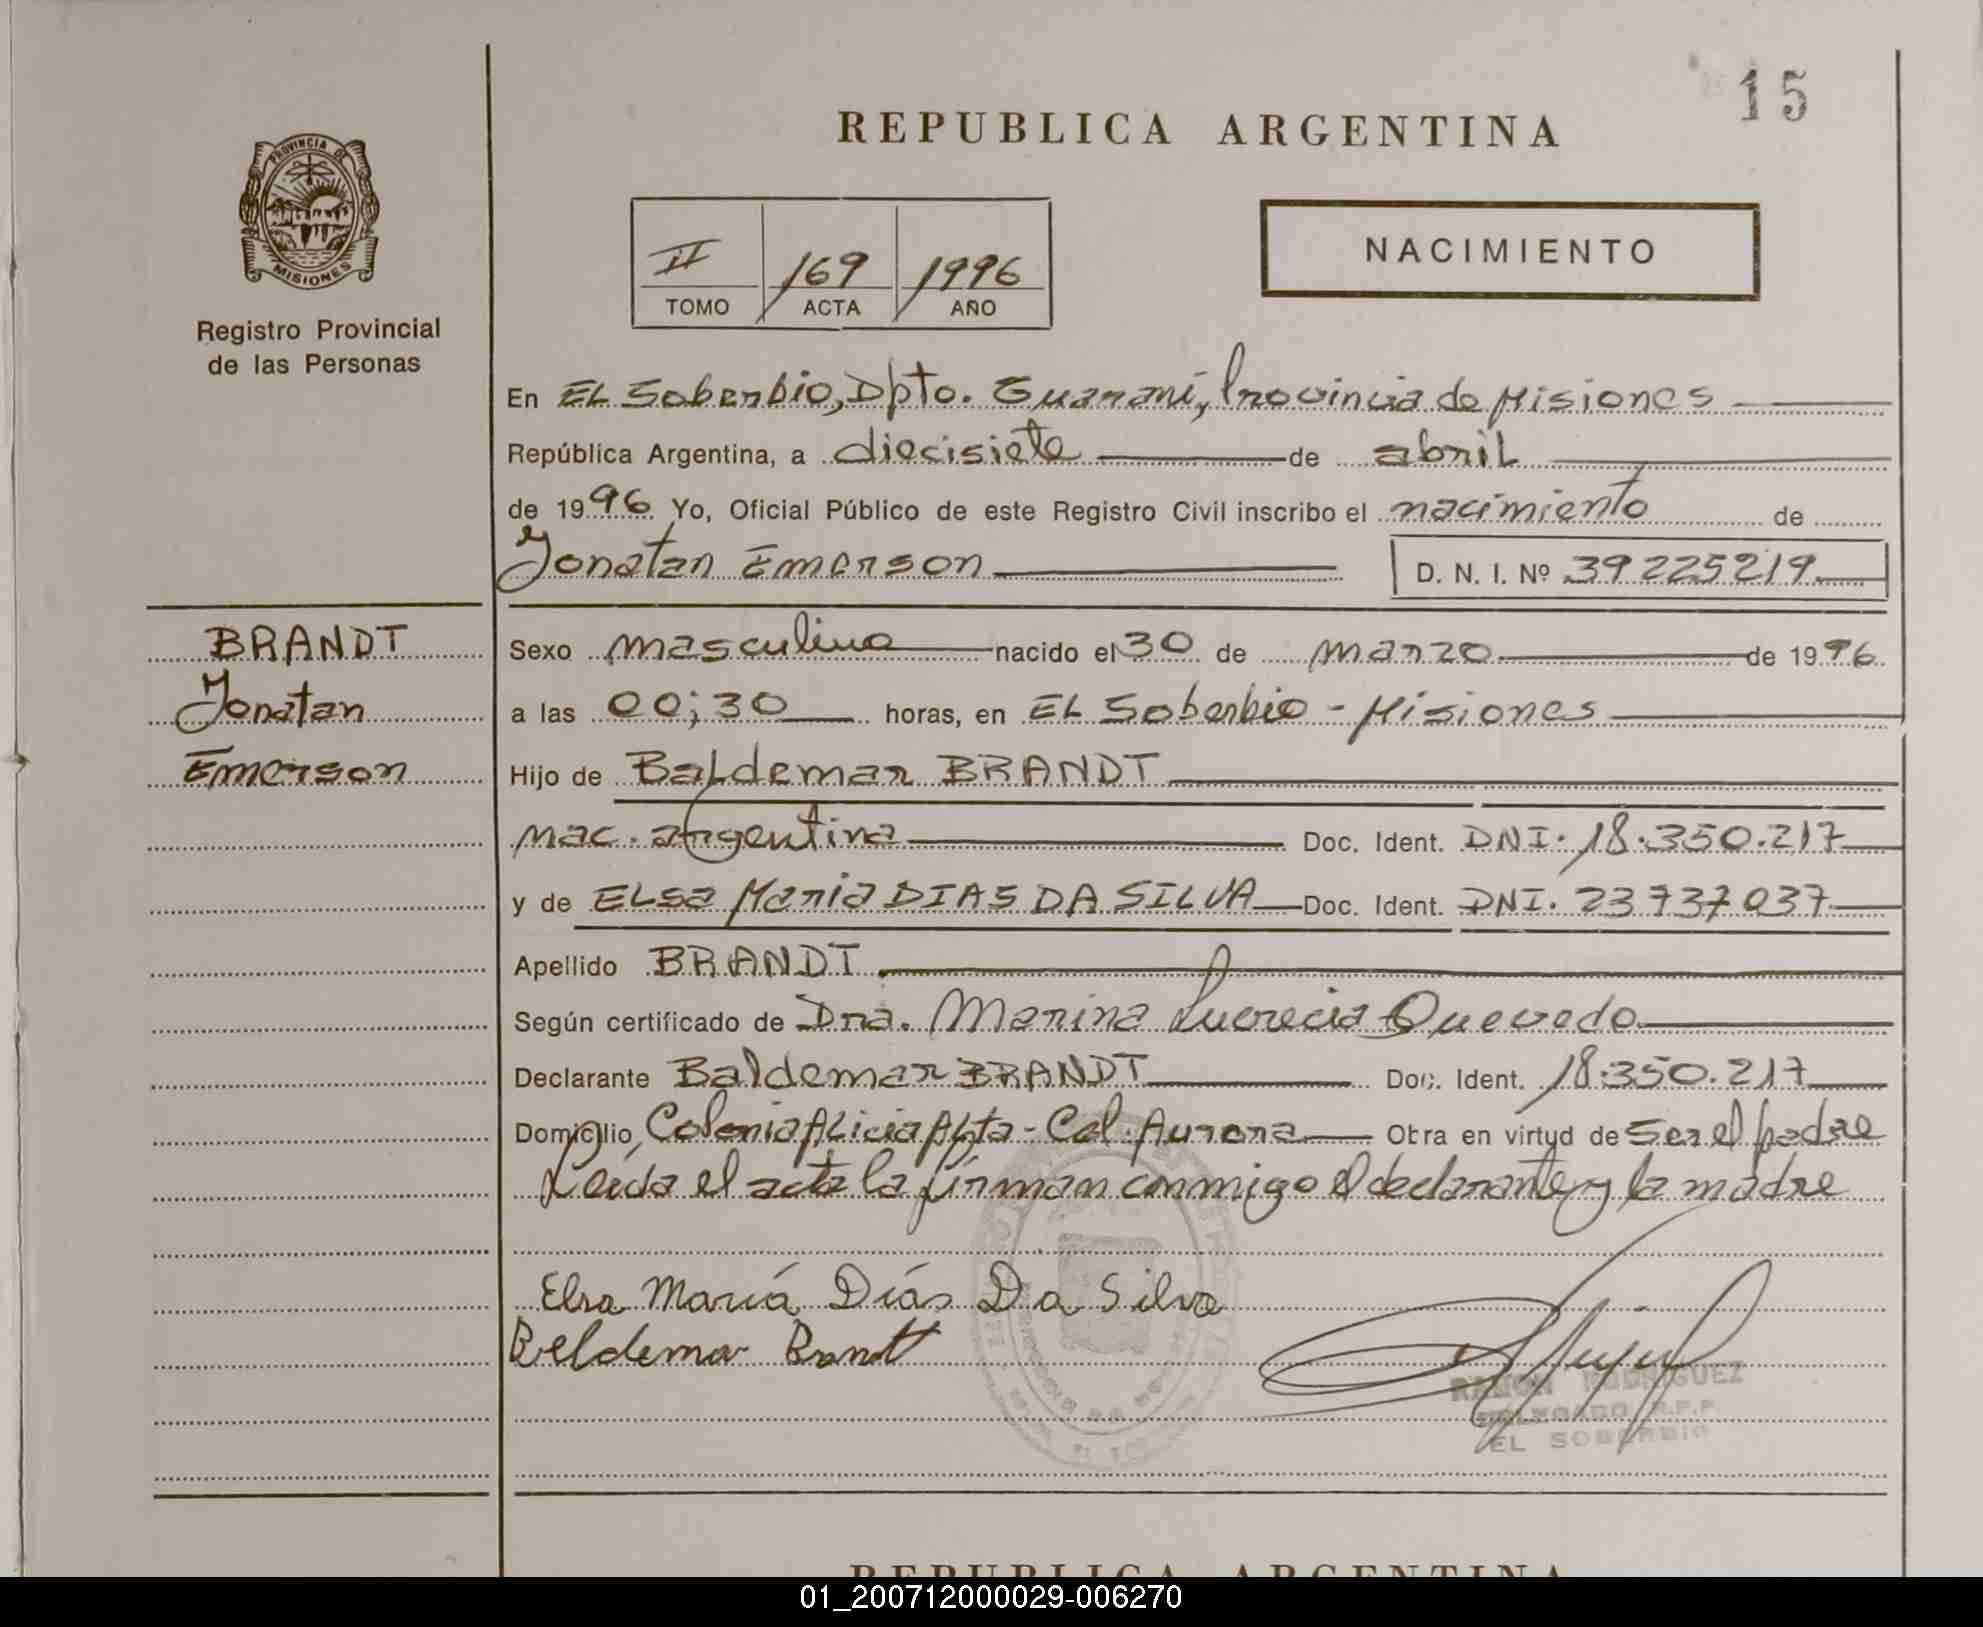 15
REPUBLICA ARGENTINA
PROVINCIA DE
MISIONES
Registro Provincial
de las Personas
II 169 1996
TOMO ACTA AÑO
NACIMIENTO
En EL Soberbio, Dpto. Guaraní, Provincia de Misiones
República Argentina, a diecisiete de abril
de 1996 Yo, Oficial Público de este Registro Civil inscribo el nacimiento de
Jonatan Emerson D. N. I. Nº 39225219
BRANDT
Jonatan
Emerson
Sexo masculino nacido el 30 de marzo de 1996
a las 00;30 horas, en EL Soberbio - Misiones
Hijo de Baldemar BRANDT
nac. argentina Doc. Ident. DNI. 18.350.217
y de ELSa Maria DIAS DA SILVA Doc. Ident. DNI. 23737037
Apellido BRANDT
Según certificado de Dra. Marina Lucrecia Quevedo
Declarante Baldemar BRANDT Doc. Ident. 18.350.217
Domicilio Colonia ALicia Alta - Col. Aurora Obra en virtud de Ser el padre
Leída el acta la firman conmigo el declarante y la madre
Elsa María Días Da Silva
Beldemar Brandt
RAMON RODRIGUEZ
DELEGADO R.P.P.
EL SOBERBIO
REPUBLICA ARGENTINA
01_200712000029-006270